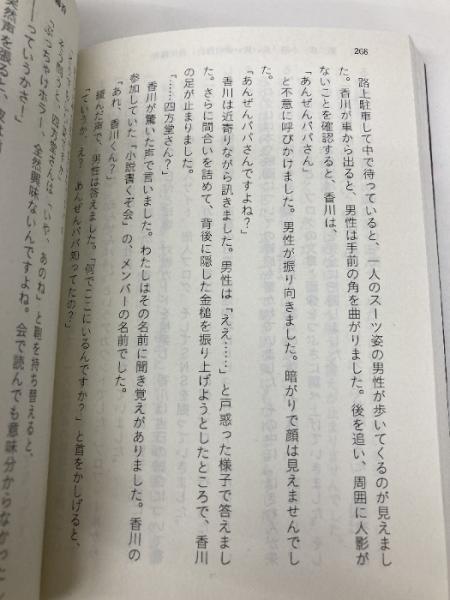 266
路上駐車して中で待っていると、一人のスーツ姿の男性が歩いてくるのが見えまし
た。香川が車から出ると、男性は手前の角を曲がりました。後を追い、周囲に人影が
ないことを確認すると、香川は、
「あんぜんパパさん」
と不意に呼びかけました。男性が振り向きました。暗がりで顔は見えませんでし
「あんぜんパパさんですよね?」
香川は近寄りながら訊きました。男性は「ええ……」と戸惑った様子で答えまし
た。さらに間合いを詰めて、背後に隠した金槌を振り上げようとしたところで、香川
の足が止まりました。
「……四方堂さん?」
香川が驚いた声で言いました。わたしはその名前に聞き覚えがありました。香川の
参加していた「小説書くぞ会」の、メンバーの名前でした。
「あれ、香川くん?」
緩んだ声で、男性は答えました。「何でここにいるんですか?」と首をかしげると、
「ていうか、え? あんぜんパパ知ってたの?」
四方堂さんは「いや、あのね」と鞄を持ち替えると、
「ぶっちゃけホラー、全然興味ないんですよね。会で読んでも意味分からなかったし
っていうかさ」
突然声を張ると、彼は